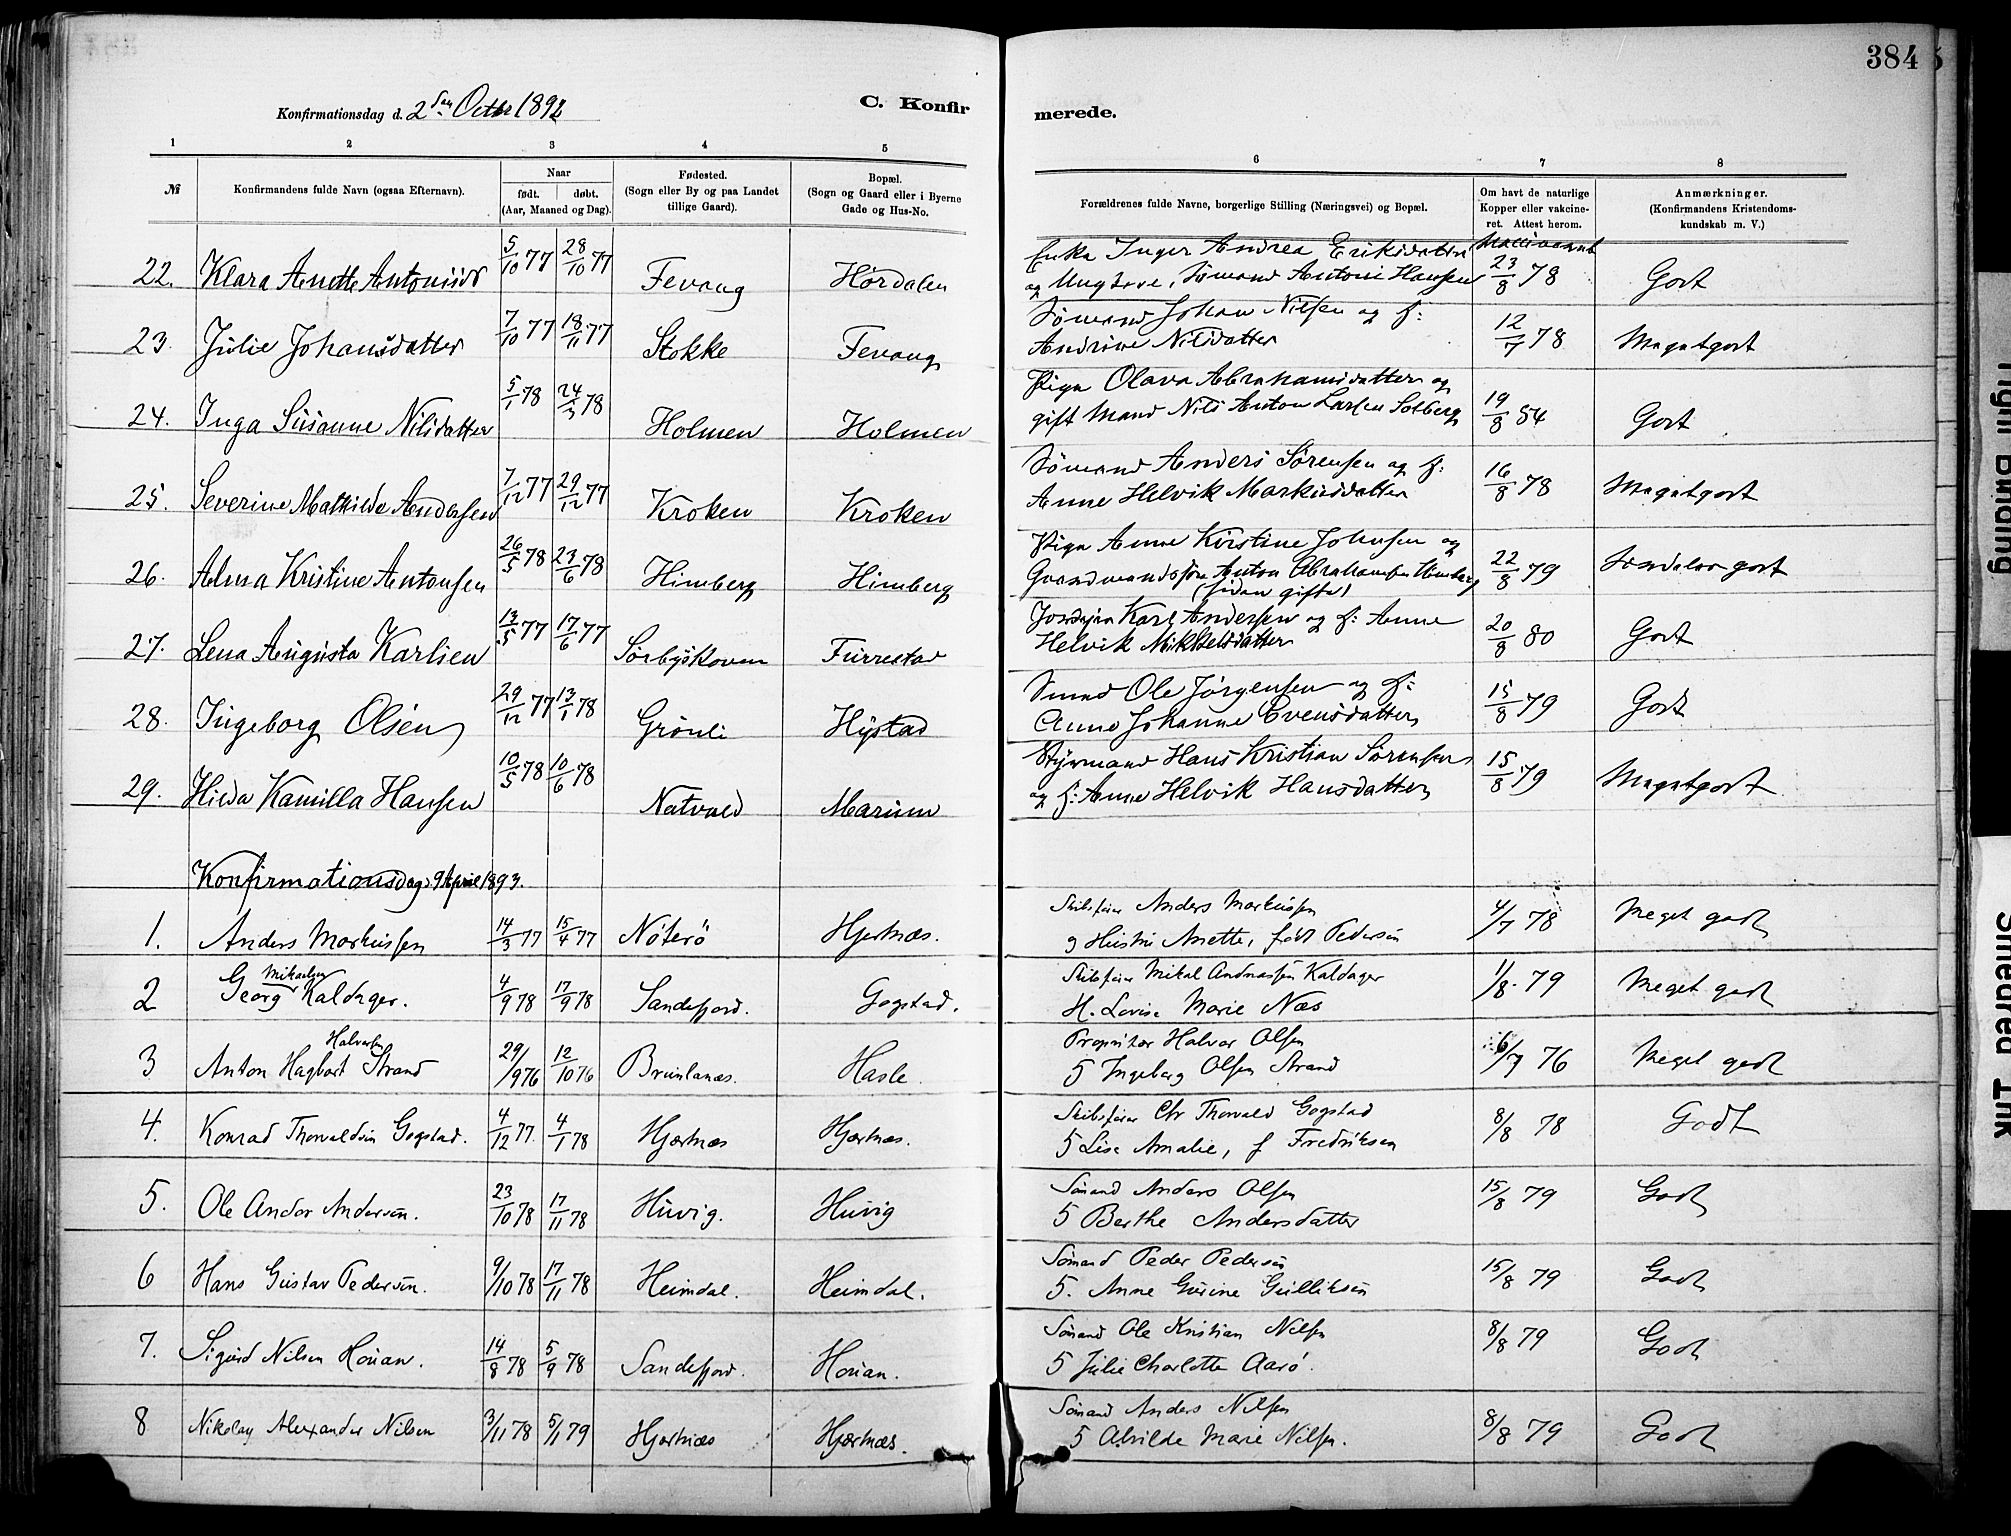 384
Konfirmationsdag d. 2den Octbr 1892
C. Konfirmerede.
1 2 3 4 5 6 7 8
№ Konfirmandens fulde Navn (ogsaa Efternavn). Naar født. døbt. (Aar, Maaned og Dag). Fødested. (Sogn eller By og paa Landet tillige Gaard). Bopæl. (Sogn og Gaard eller i Byerne Gade og Hus-No. Forældrenes fulde Navne, borgerlige Stilling (Næringsvei) og Bopæl. Om havt de naturlige Kopper eller vakcineret. Attest herom. Anmærkninger. (Konfirmandens Kristendomskundskab m. V.)
22. Klara Anette Antonisdr 5/10 77 28/10 77 Fevang Hørdalen Enka Inger Andrea Eriksdatter
og Ungkarl, Sømand Antoni Hansen 23/8 78 Godt
23. Julie Johansdatter 7/10 77 18/11 77 Stokke Fevang Sømand Johan Nilsen og H:
Andrine Nilsdatter 12/7 78 Megetgodt
24. Inga Susanne Nilsdatter 5/1 78 24/3 78 Holmen Holmen Pige Olava Abrahamsdatter og
gift Mand Nils Anton Larsen Solberg 19/8 84 Godt
25. Severine Mathilde Andersen 7/12 77 29/12 77 Kroken Kroken Sømand Anders Sørensen og H:
Anne Helvik Markusdatter 16/8 78 Megetgodt
26. Alma Kristine Antonsen 26/5 78 23/6 78 Himberg Himberg Pige Anne Kirstine Johnsen og
Gaardmandssøn Anton Abrahamsen Himberg 22/8 79 Særdeles godt
(siden gifte)
27. Lena Augusta Karlsen 13/5 77 17/6 77 Sørbyskoven Furrestad Jordejer Karl Andersen og H: Anne
Helvik Mikkelsdatter 20/8 80 Godt
28. Ingeborg Olsen 29/12 77 13/1 78 Grönli Hystad Smed Ole Jörgensen og H:
Anne Johanne Evensdatter 15/8 79 Godt
29. Hilda Kamilla Hansen 10/5 78 10/6 78 Natvald Marum Styrmand Hans Kristian Sørensen
og H: Anne Helvik Hansdatter 15/8 79 Megetgodt
Konfirmationsdag 9 April 1893.
1. Anders Markussen 14/3 77 15/4 77 Nøterö Hjertnæs. Skibsfører Anders Markussen
og Hustru Anette, født Pedersen 4/7 78 Meget godt
2 Georg Mikaelsen Kaldager. 4/9 78 17/9 78 Sandefjord. Gogstad. Skibsfører Mikal Andreassen Kaldager
H. Lovise Marie Næs 1/8 79 Meget godt
3 Anton Hagbart Halvorsen Strand 29/9 76 12/10 76 Brunlanæs. Hasle. Proprietær Halvor Olsen
H Ingeborg Olsen Strand 6/7 76 Meget godt
4. Konrad Thorvaldsen Gogstad. 4/12 77. 4/1 78 Hjertnæs Hjertnæs. Skibsfører Chr Thorvald Gogstad
H Lise Amalie, f Fredriksen 8/8 78 Godt
5. Ole Andor Andersen. 23/10 78 17/11 78 Huvig. Huvig Sömand Anders Olsen
H Berthe Andersdatter 15/8 79 Godt
6 Hans Gustav Pedersen. 9/10 78 17/11 78 Heimdal. Heimdal. Sömand Peder Pedersen
H. Anne Gurine Gulliksen 15/8 79 Godt
7. Sigurd Nilsen Houan. 14/8 78 5/9 78 Sandefjord. Houan. Sömand Ole Kristian Nilsen
H Julie Charlotte Aarö. 8/8 79 Godt
8 Nikolay Alexander Nilsen 3/11 78 5/1 79 Hjertnæs Hjertnæs. Sömand Anders Nilsen
H Alvilde Marie Nilsen. 8/8 79 Godt